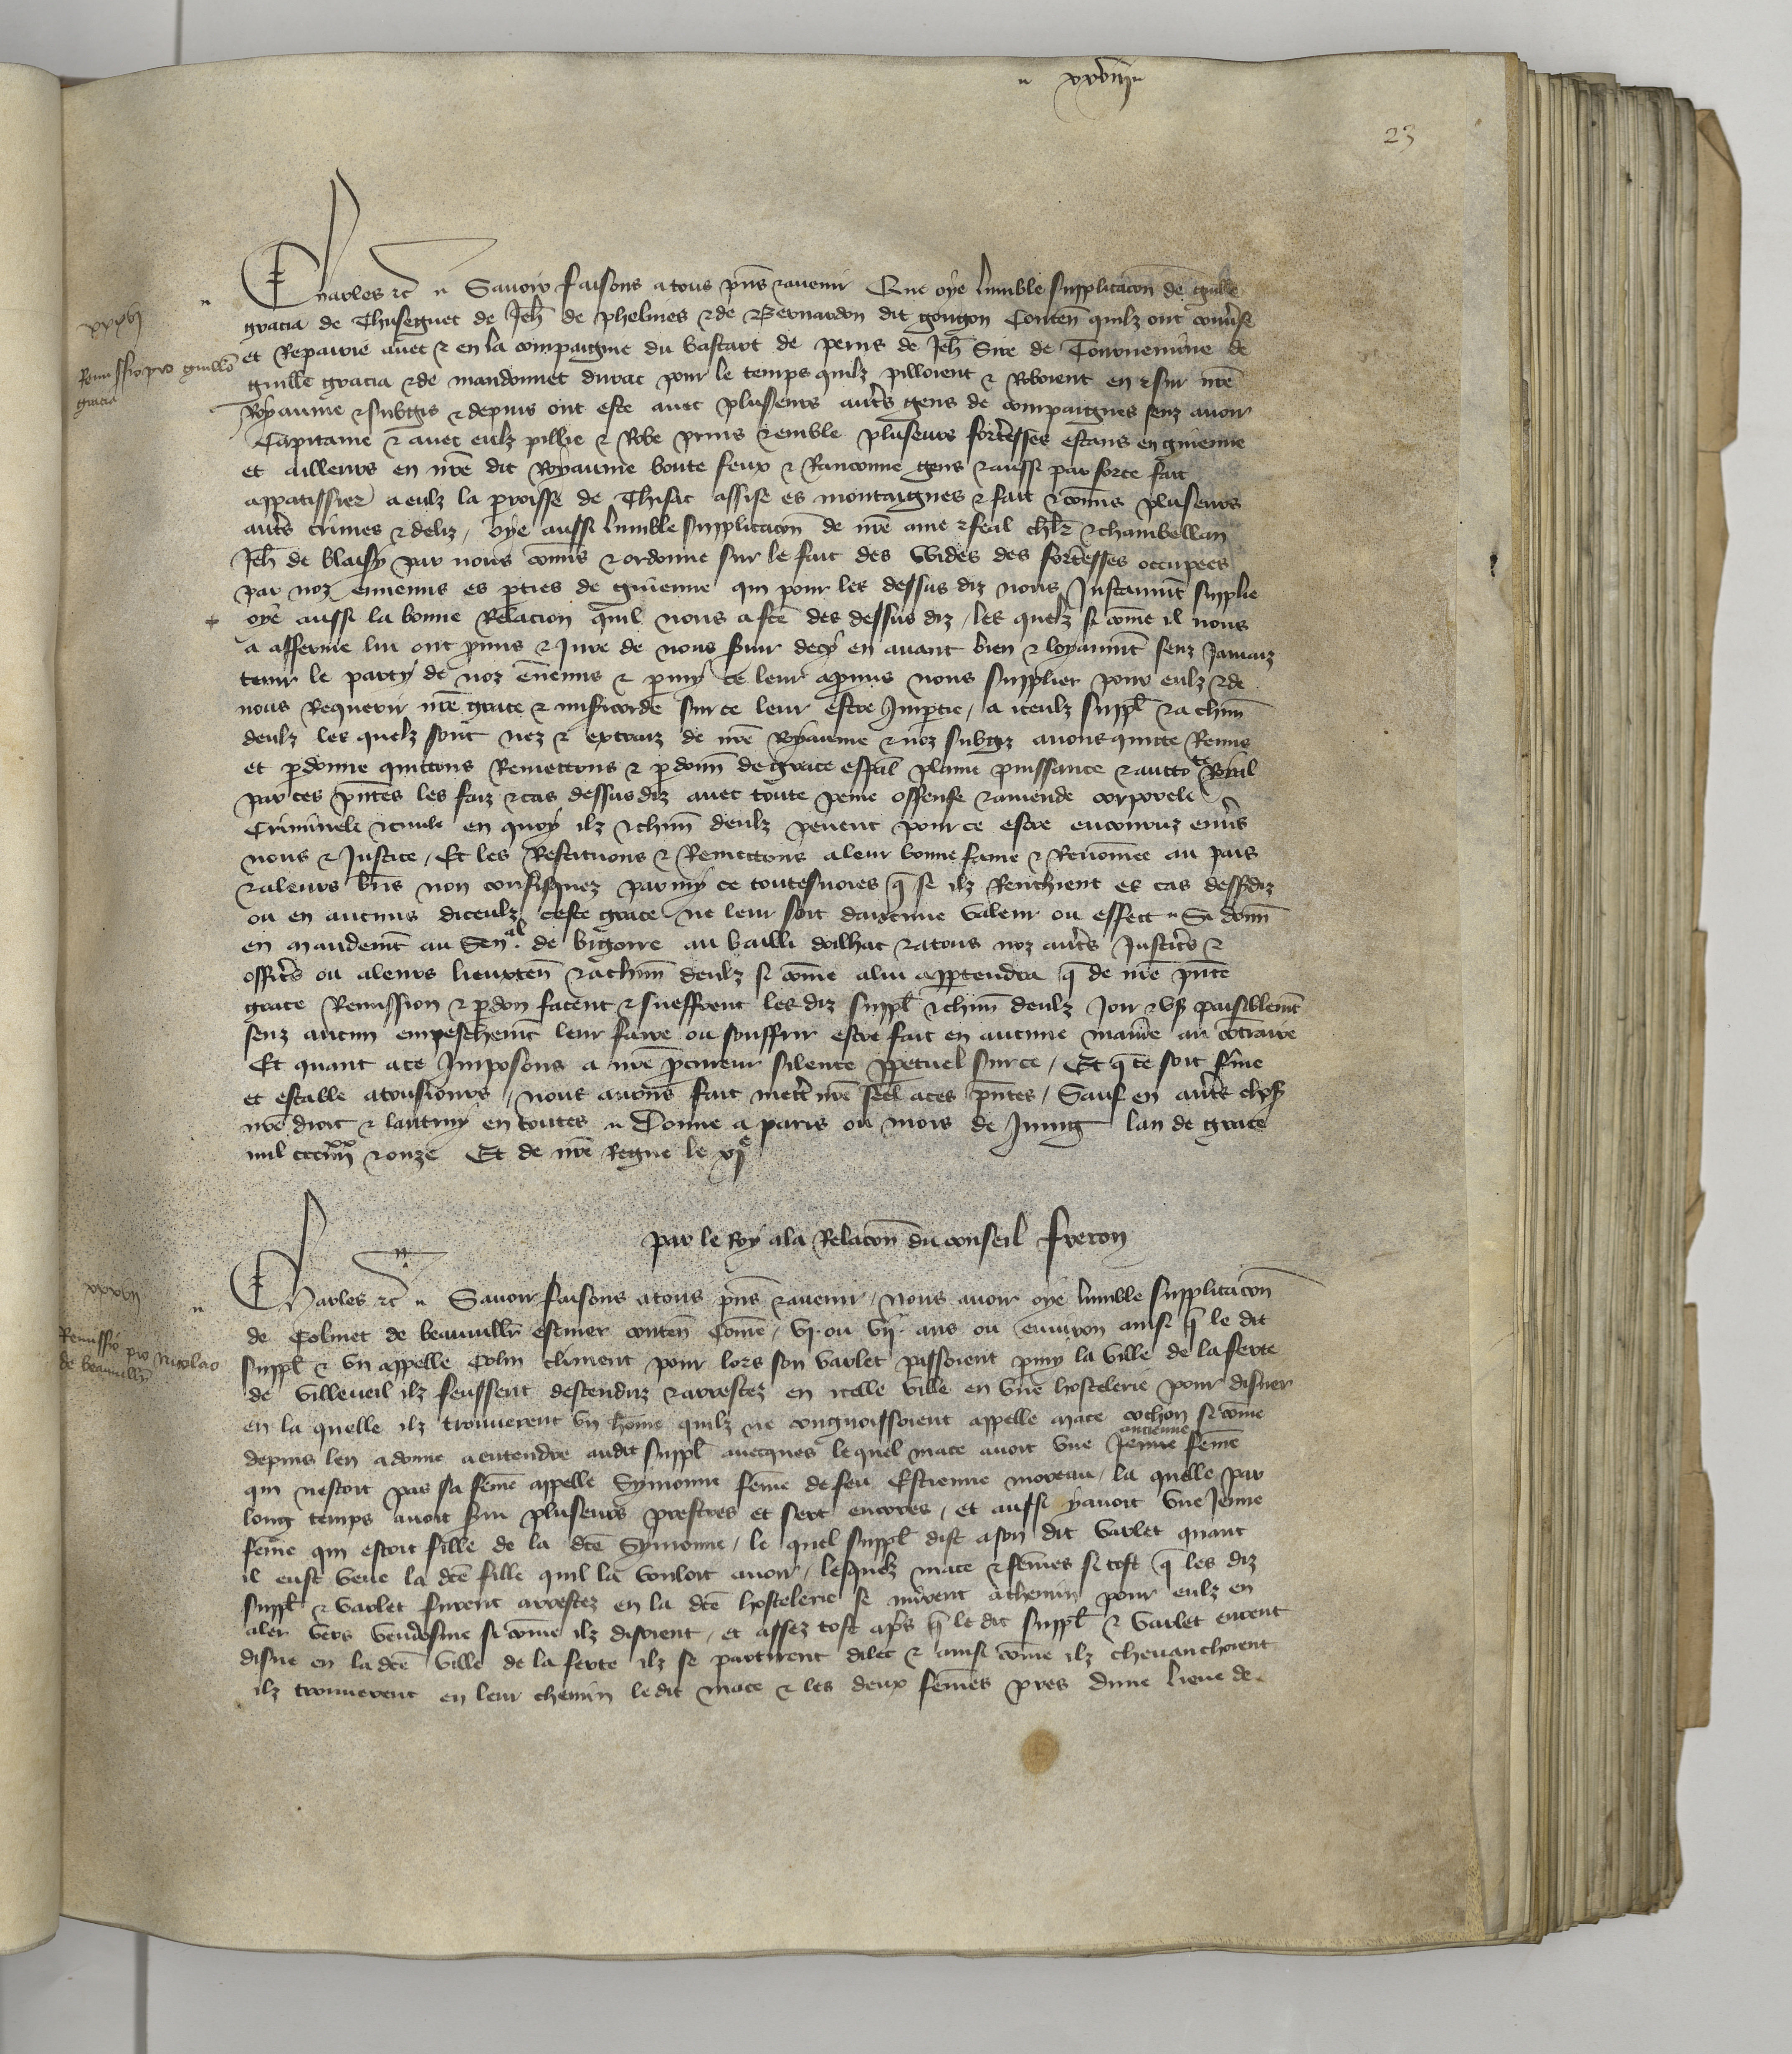 xxviij
23
Charles etc Savoir faisons a tous pñs et avenir Que oye lumble supplicacõn de guille
gracia de Thuseguet de Jeh de phelines et de Bernardon dit gougon Conteñ quilz ont convse
xxxvj
Remissio pro guillo
gracia
et Repairie avec et en la compaignie du bastart de perns de Jeh Sire de Tournemine de
guille gracia et de mandonnet durac pour le temps quilz pilloient et Roboient en et sur nre
Royaume et subgis et depuis ont este avec pluseurs autrs gens de compaignes senz avoir
Capitaine et avec eulz pillie et Robe prins et emble pluseurs fortresses estans en guienne
et ailleurs en nre dit Royaume boute feux et Ranconne gens et aussi par force fait
appatissier a eulz la proisse de Thisac assise es montaignes et fait et comis pluseurs
autrs crimes et deliz / oye aussi lumble supplicacõn de nre ame et feal chlr et chambellan
Jeh de blaisy par nous comis et ordonne sur le fait des Wides des fortresses occupees
par noz ennemis es pties de guienne qui pour les dessus diz nous Instanmt suplie
oye aussi la bonne Relacion quil nous a fte des dessus diz / les quelz si cõme il nous
a afferme lui ont pmis et Jure de nous svir decy en avant bien et loyaumt senz Jamaiz
tenir le party de noz ennemis et pmy ce leur a pmis nous supplier pour eulz et de
nous Requerir nre grace et misicorde sur ce leur estre Impartie / a iceulz suppl et a chũn
deulz les quelz sont nez et extraiz de nre Royaume et noz subgiz avons quicte Remis
et pdonne quictons Remettons et pdonñ de grace espal plaine puissance et auctote Royal
par ces pntes les faiz et cas dessusdiz avec toute peine offense et amende corporele
Criminele et civile en quoy ilz et chũn deulz pevent pour ce estre encouruz envs
nous et Justice / Et les Restituons et Remettons a leur bonne fame et Renomee au pais
et a leurs bns non confisquez parmy ce toutesvoies q se ilz Renchient es cas dessdiz
ou en aucuns diceulz ceste grace ne leur soit daucune valeur ou effect Si donñ
en mandemt au Senal de bigorre au bailli doilhac et a tous noz autrs Justicrs et
officrs ou a leurs lieuxten et a chũn deulz si cõme a lui appartendra q de nre pnte
grace Remission et pdon facent et sueffrent les diz suppl et chũn deulz Joir et us paisiblemt
senz aucun empeschemt leur faire ou souffrir estre fait en aucune maniere au contraire
Et quant a ce Imposons a nre pcureur silence ppetuel sur ce / Et q ce soit ferme
et estable a tousiours / nous avons fait mettre nre seel a ces pntes / Sauf en autrs choses
nre droit et lautruy en toutes Donne a paris ou mois de Juing lan de grace
mil ccciiijxx et onze Et de nre Regne le xje
par le Roy a la Relacõn du conseil Freron
xxxvij
Charles etc Savoir faisons a tous pñs et avenir / nous avoir oye lumble supplicacõn
Remissio pro Nicolao
de beauvillr
de Colinet de beauvillr escuier conteñ Cõme / vj. ou vij. ans ou environ ainsi q le dit
suppl et un appelle Colin climent pour lors son varlet passoient pmy la ville de la ferte
de villeneil ilz feussent descenduz et arrestez en icelle ville en une hostelerie pour disner
en la quelle ilz trouverent un hõme quilz ne congnoissoient appelle mace cochon si cõme
depuis len a donne a entendre audit suppl avecques lequel mace avoit une Jenne ancienne femme
qui nestoit pas sa femme appelle Symonne femme de feu Estienne moreau / la quelle par
long temps avoit svi pluseurs prestres et sert encores / et aussi y avoit une Jenne
femme qui estoit fille de la dce Symonne / le quel suppl dist a son dit varlet quant
il eust veue la dce fille quil la vouloit avoir / lesquelz mace et femmes si tost q les diz
suppl et varlet furent arrestez en la dce hostelerie se mirent a chemin pour eulz en
aler vers vendosme si cõme ilz disoient / et assez tost aprs q le dit suppl et varlet eurent
disne en la dce ville de la ferte ilz se partirent dilec et ainsi cõme ilz chevauchoient
ilz trouverent en leur chemin ledit mace et les deux femmes pres dune lieue de